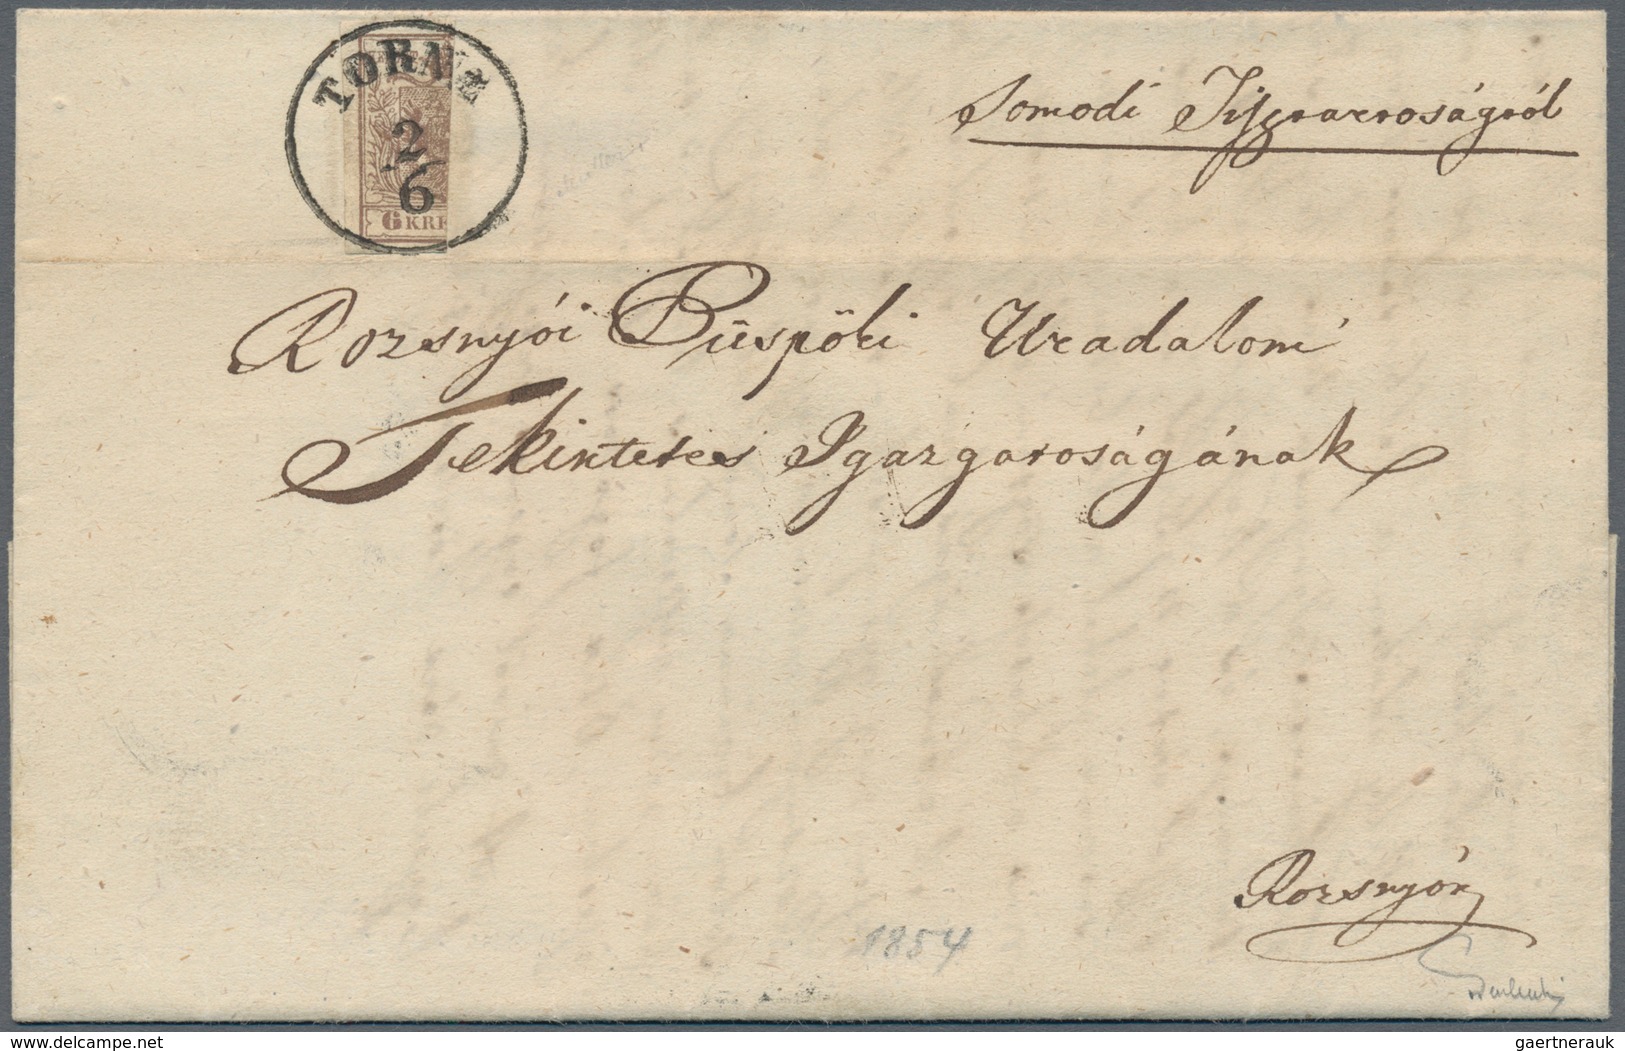 TORNA
2/6
6 KRE
Somodi
Rozsnyói Püspöki Uradalomi
Tekintetes Igazgatóságának
Rozsnyón
1854
www.delcampe.net
gaertnerauk